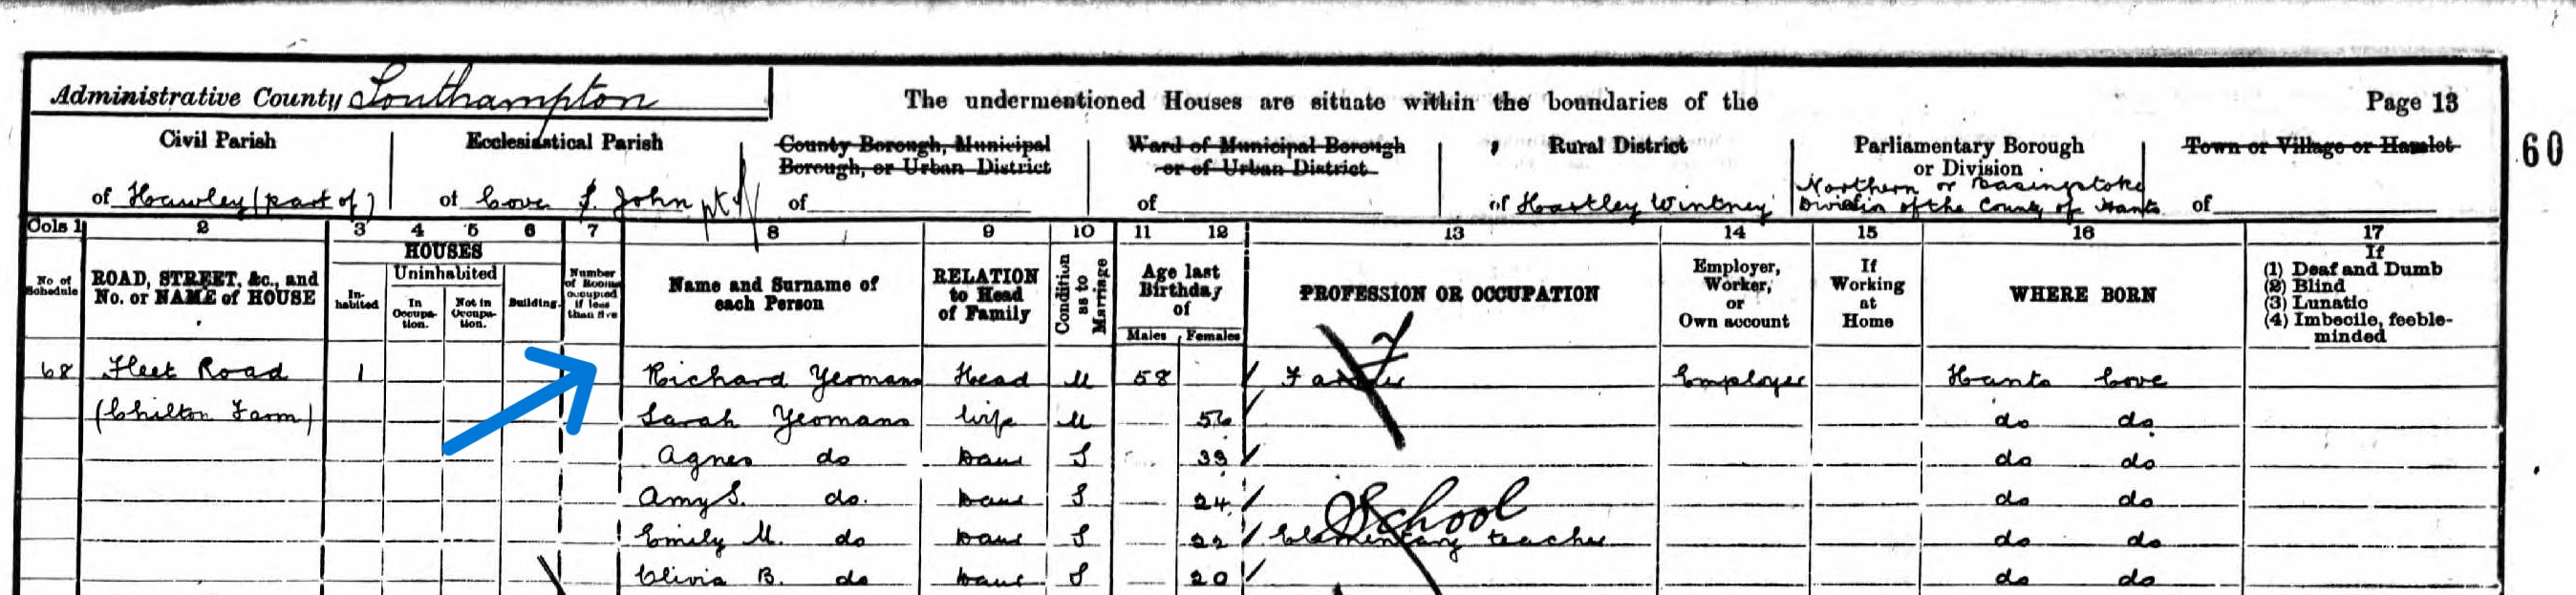 Administrative County Southampton
The undermentioned Houses are situate within the boundaries of the
Page 13
Civil Parish
of Hawley (part of)
Ecclesiastical Parish
of Cove S. John pt of
County Borough, Municipal
Borough, or Urban District
of
Ward of Municipal Borough
or of Urban District
of
Rural District
of Hartley Wintney
Parliamentary Borough
or Division
Northern or Basingstoke
Division of the County of Hants
Town or Village or Hamlet
of
60
Cols 1 2 3 4 5 6 7 8 9 10 11 12 13 14 15 16 17
No of Schedule
ROAD, STREET, &c., and
No. or NAME of HOUSE
HOUSES
In-
habited
Uninhabited
In
Occupa-
tion.
Not in
Occupa-
tion.
Building.
Number
of Rooms
occupied
if less
than five
Name and Surname of
each Person
RELATION
to Head
of Family
Condition
as to
Marriage
Age last
Birthday
of
Males Females
PROFESSION OR OCCUPATION
Employer,
Worker,
or
Own account
If
Working
at
Home
WHERE BORN
If
(1) Deaf and Dumb
(2) Blind
(3) Lunatic
(4) Imbecile, feeble-
minded
68 Fleet Road 1 Richard Yeomans Head M 58 Farmer Employer Hants Cove
(Chilton Farm) Sarah Yeomans Wife M 56 do do
Agnes do Daur S 33 do do
Amy S. do. Daur S 24 do do
School
Emily M. do Daur S 22 Elementary teacher do do
Olivia B. do Daur S 20 do do